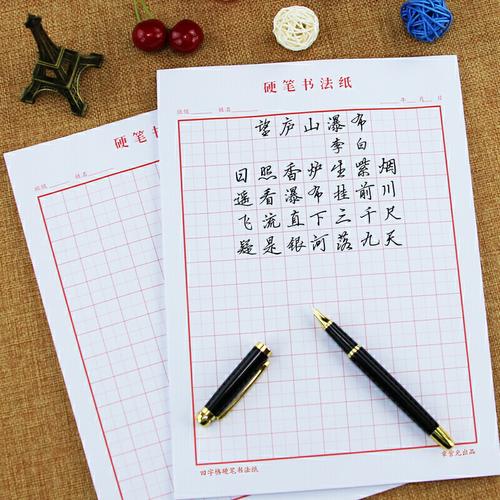 硬笔书法纸
班级 姓名 年 月 日
望庐山瀑布
李白
日照香炉生紫烟
遥看瀑布挂前川
飞流直下三千尺
疑是银河落九天
田字格硬笔书法纸
硬笔书
班级 姓名